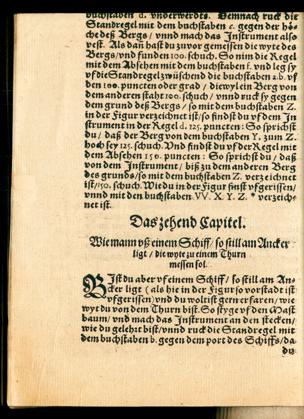 buchstaben d. vnderwerdts. Demnach ruck die
Standregel mit dem buchstaben c. gegen der hö-
che deß Bergs / vnnd mach das Instrument also
vest. Als dan̄ hast du zuvor gemessen die wyte des
Bergs / vnd funden 100. schuch. So nim die Regel
mit dem Absehen mit dem buchstaben f. vnd leg sy
vf die Standregel zwüschend die buchstaben a.b. vf
den 100. puncten oder grad / diewyl ein Berg von
dem anderen statt 100. schuch / vnnd ruck sy gegen
dem grund deß Bergs / so mit dem buchstaben Z.
in der Figur verzeichnet ist / so findst du vf dem In
strument in der Regel d. 125. puncten: So sprichst
du / daß der Berg von dem buchstaben Y. zum Z.
hoch sey 125. schuch. Vnd findst du vf der Regel mit
dem Absehen 150. puncten: So sprichst du / daß
von dem Instrument / biß zu dem anderen Berg
des grunds / so mit dem buchstaben Z. verzeichnet
ist / 150. schuch. Wie du in der Figur finst vfgerissen /
vnnd mit den buchstaben VV. X. Y. Z. verzeich-
net ist.
Das zehend Capitel.
Wie man vß einem Schiff / so still am Ancker
ligt / die wyte zu einem Thurn
messen sol.
BIst du aber vf einem Schiff / so still am An-
cker ligt (als hie in der Figur so vorstadt ist
vfgerissen) vnd du woltist gern erfaren / wie
wyt du von dem Thurn bist. So styge vf den Mast
baum / vnd mach das Instrument an den stecken /
wie du gelehrt bist / vnnd ruck die Standregel mit
dem buchstaben b. gegen dem port des Schiffs / da